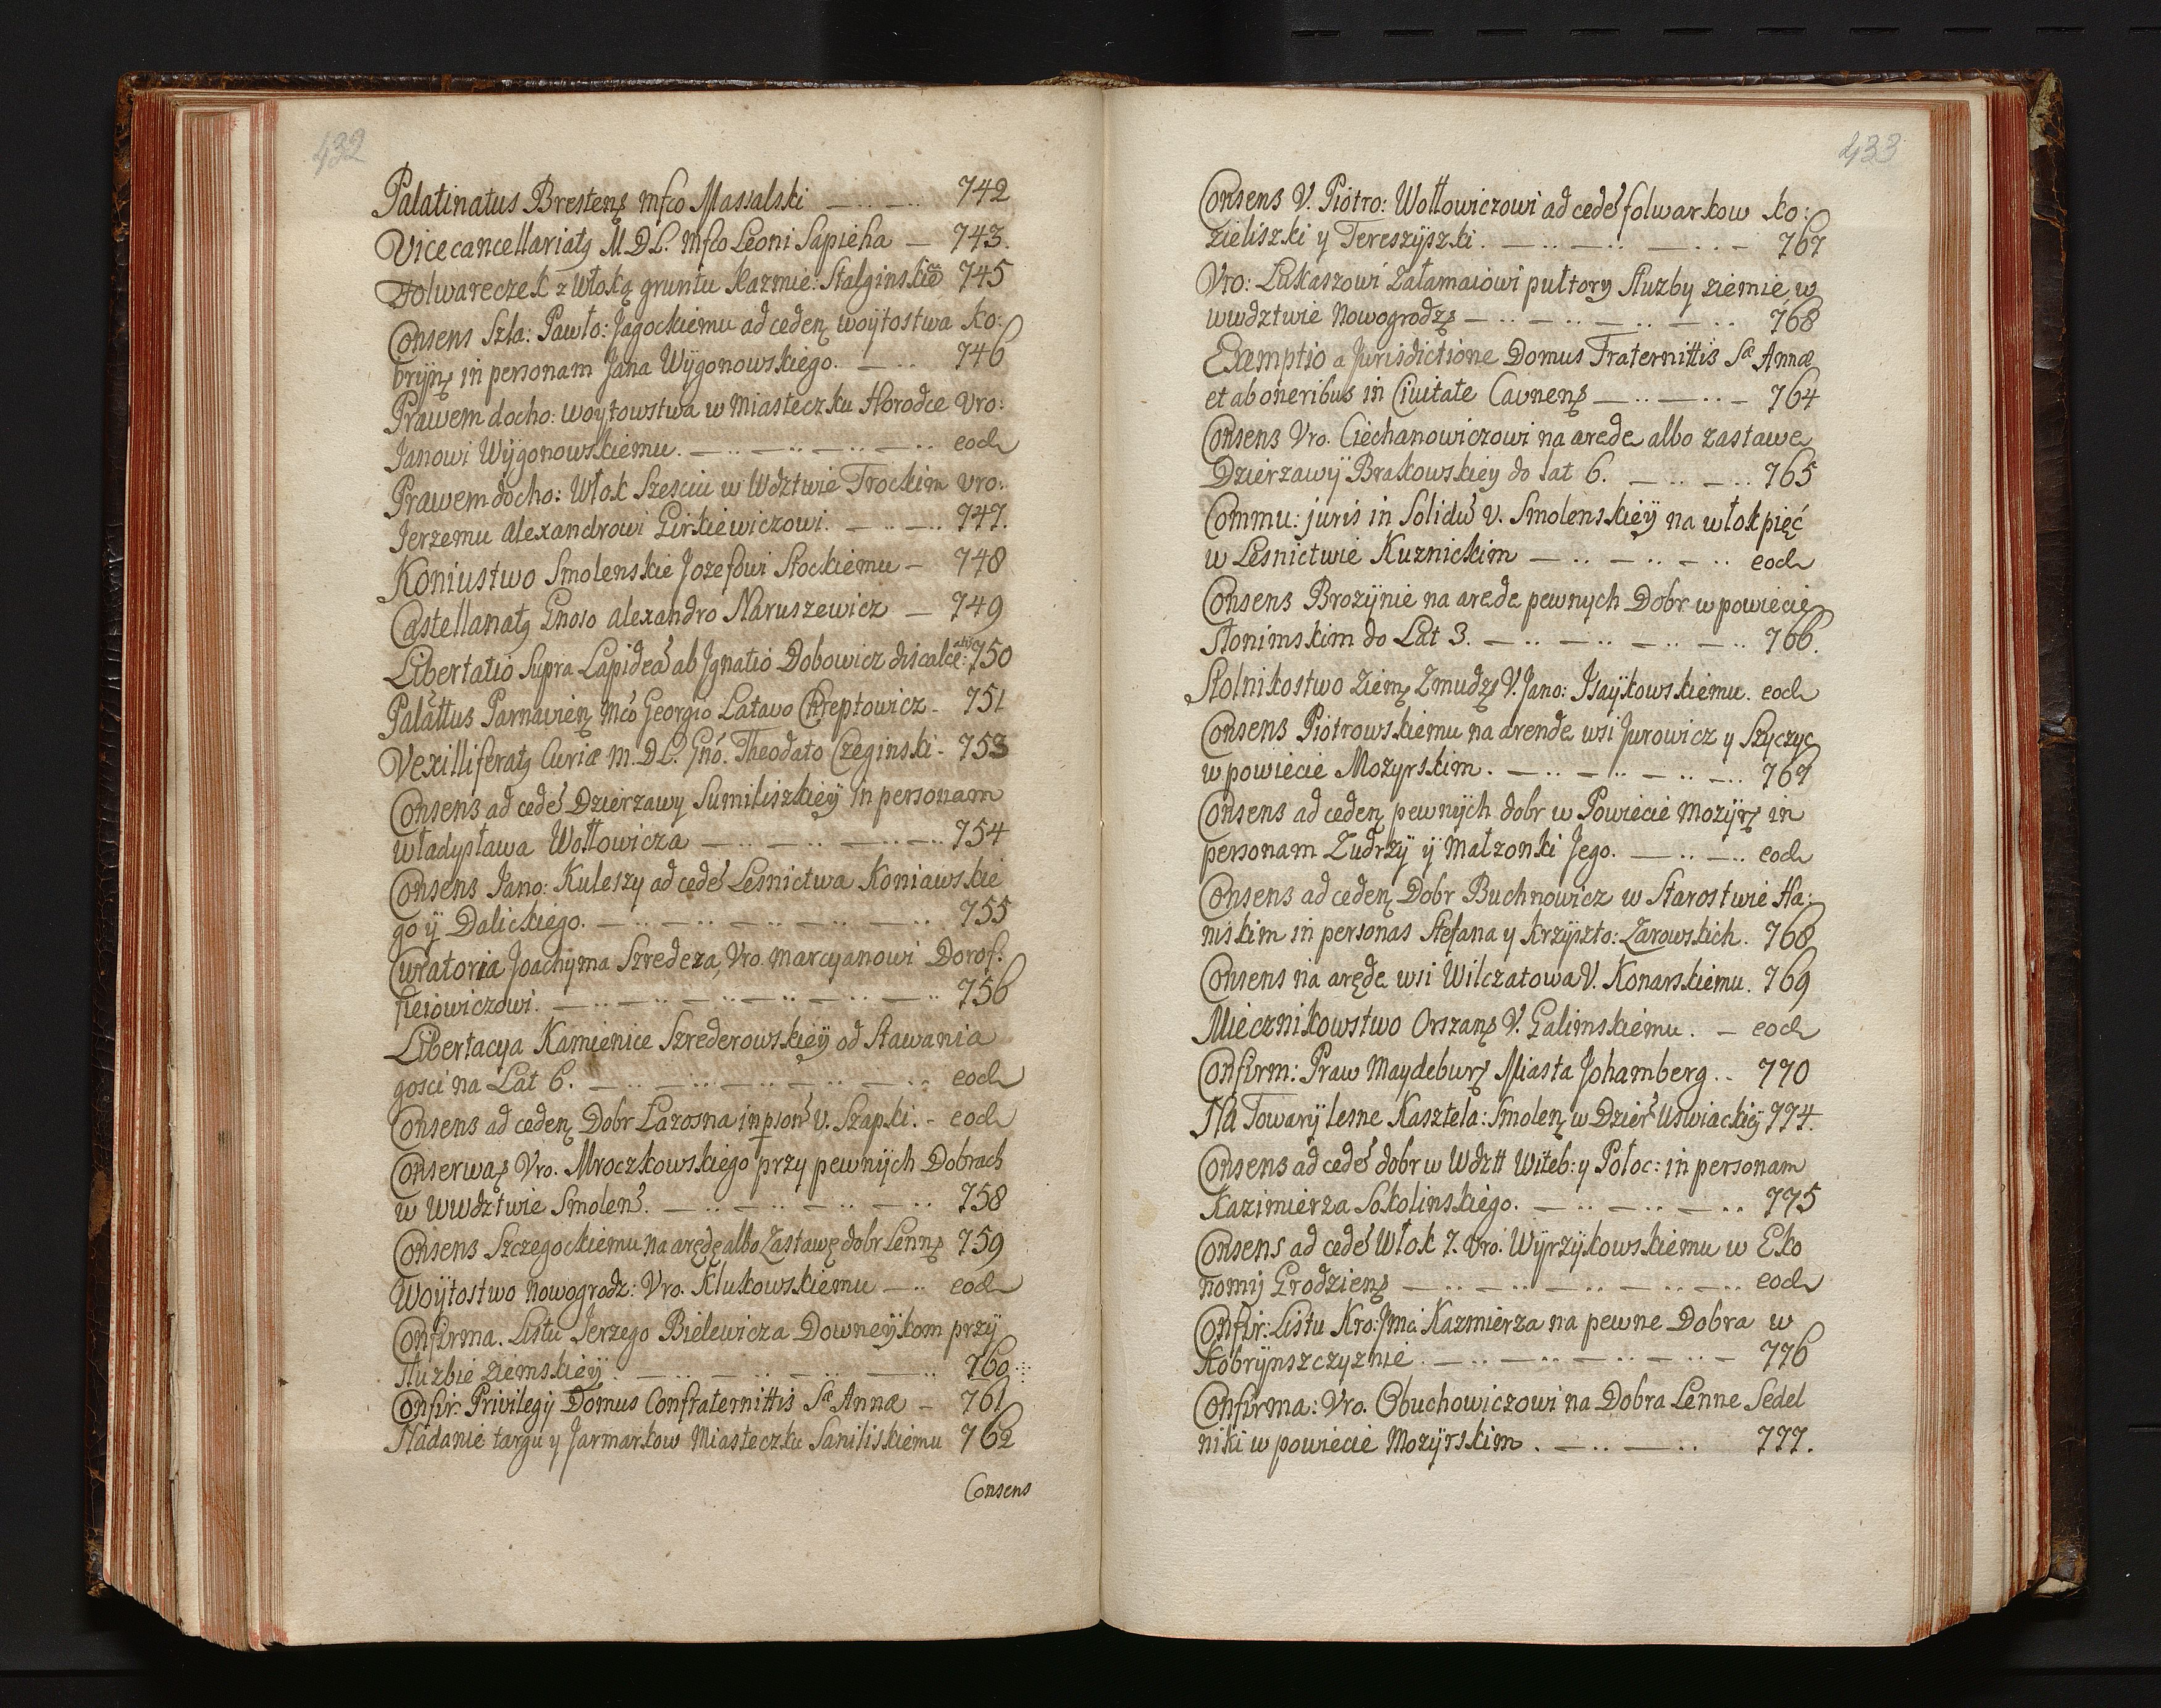 432
Palatinatus Brestenş mfco Massalski — .. — .. 742
Vicecancellariatş M. D L. mfco Leoni Sapieha — 743.
Folwareczek z Włoką gruntu Kazmie: Stalginskie 745
Consens Szla: Pawło: Jagockiemu ad cedenş woÿtostwa Ko:
brÿnş in personam Jana Wÿgonowskiego. — .. 746
Prawem docho: woytowstwa w Miasteczku Horodce Vro:
Janowi Wÿgonowskiemu. — .. — .. — .. — .. eod
Prawem docho: Włok Szesciu w Wdztwie Trockim vro:
Jerzemu Alexandrowi Girkiewiczowi. — .. — .. 747.
Koniustwo Smolenskie Jozefowi Stockiemu — 748
Castellanatş Gnoso Alexandro Naruszewicz — 749
Libertatio Supra Lapideã ab Jgnatio Dobowicz discalce: 750
Palattus Parnavienş Mco Georgio Latavo Chreptowicz - 751
Vexilliferatş Curiæ M. D L. Gno. Theodato Czeginski - 753
Consens ad cede Dzierzawy Sumiliszkieÿ in personam
władysława Wołłowicza — .. — .. — .. — .. 754
Consens Jano: Kuleszy ad cede Lesnictwa Koniawskie
go ÿ Dalickiego. — .. — .. — .. — .. 755
Curatoria Joachÿma Szredera, Vro. Marcyanowi Dorof:
fieiowiczowi. — .. — .. — .. — .. — .. 756
Libertacya Kamienice Szrederowskieÿ od Stawania
gosci na Lat 6. — .. — .. — .. — .. eod
Consens ad cedenş Dobr Lazosna in pson V. Szapki. - eod
Conserwaş Vro. Mroczkowskiego przy pewnÿch Dobrach
w wwdztwie Smolen. — .. — .. — .. — .. 758
Consens Szczegockiemu na arędę albo Zastawę dobr Lennş 759
Woÿtostwo Nowogrodz: Vro. Klukowskiemu — .. eod
Confirma. Listu Jerzego Bielewicza Downeÿkom przÿ
słuzbie ziemskieÿ. — .. — .. — .. — .. 760
Confir: Privilegÿ Domus Confraternittis Sæ Annæ — 761
Nadanie targu y Jarmarkow Miasteczku Saniliskiemu 762
Consens
433
Consens V. Piotro: Wołłowiczowi ad cede folwarkow Ko:
zieliszki y Tereszÿszki. — .. — .. — .. — 767
Vro: Lukaszowi Załamaiowi pułtory słuzby ziemie, w
wwdztwie Nowogrodzş — .. — .. — .. — .. 768
Exemptio a Jurisdictione Domus Fraternittis Sæ Annæ
et ab oneribus in Civitate Caunenş — .. — .. — 764
Consens Vro. Ciechanowiczowi na arede albo zastawe
Dzierzawÿ Brakowskiey do lat 6. — .. — .. 765
Commu: juris in Solidu V. Smolenskieÿ na włok pięć
w Lesnictwie Kuznickim — .. — .. — .. eod
Consens Brozÿnie na arede pewnych Dobr w powiecie
Słonimskim do Lat 3. — .. — .. — .. — .. 766.
Stolnikostwo Ziemş Zmudzş V. Jano: Jsaÿkowskiemu. eod
Consens Piotrowskiemu na arende wsi Jurowicz y Szyczyc
w powiecie Mozyrskim. — .. — .. — .. — .. 767
Consens ad cedenş pewnÿch dobr w Powiecie Mozÿrş in
personam Zudrzÿ ÿ Małzonki Jego. — .. — .. eod
Consens ad cedenş Dobr Buchnowicz w Starostwie Ha:
niskim in personas Stefana y Krzÿszto: Zarowskich. 768
Consens na arędę wsi Wilczatowa V. Konarskiemu. 769
Miecznikowstwo Orszanş V. Galimskiemu. — eod
Confirm: Praw Maydeburş Miasta Johamberg. .. 770
Na Towarÿ lesne Kasztela: Smolenş w Dzier Uswiackieÿ 774.
Consens ad cede dobr w Wdztt Witeb: y Połoc: in personam
Kazimierza Sokolinskiego. — .. — .. — .. 775
Consens ad cede Włok 7. Vro. Wÿrzÿkowskiemu w Eko
nomij Grodzienş — .. — .. — .. — .. eod
Confir: Listu Kro: Jmci Kazmierza na pewne Dobra w
Kobrÿnszczyznie. — .. — .. — .. — .. — 776
Confirma: Vro. Obuchowiczowi na Dobra Lenne Sedel
niki w powiecie Mozÿrskim. — .. — .. 777.